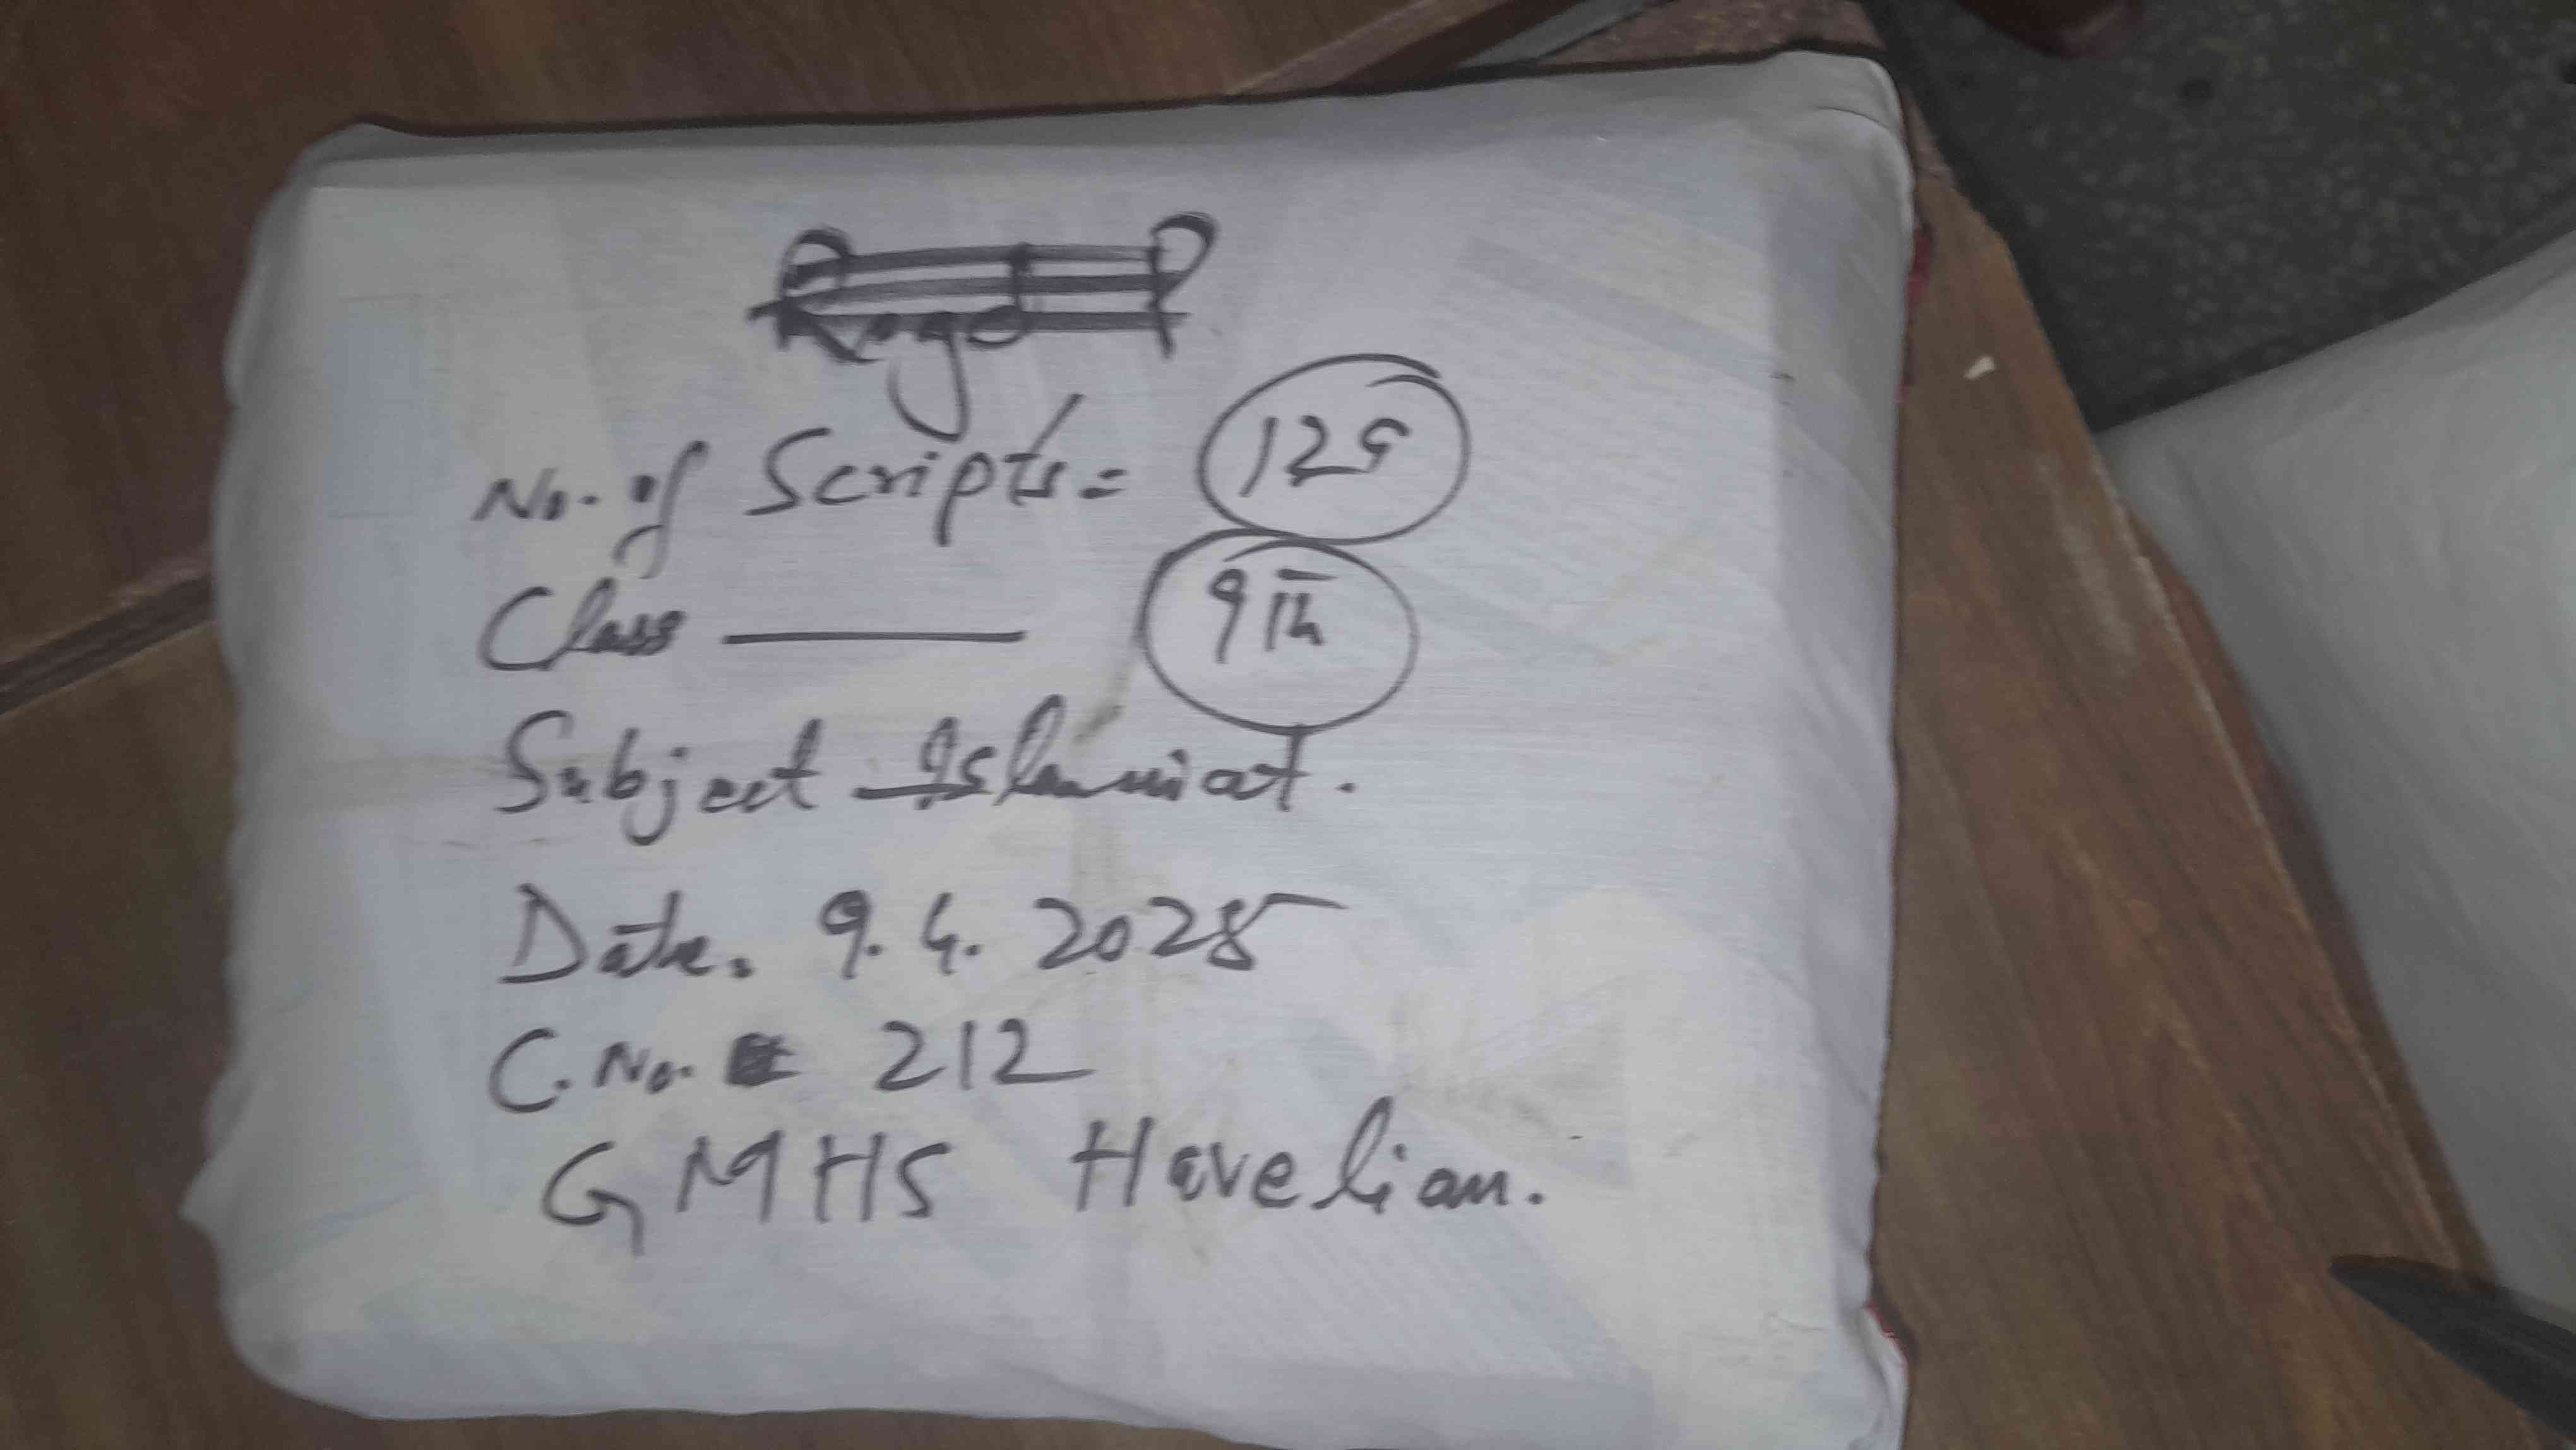 No. of Scripts =
Class — 9th
Subject Islamiat.
Date. 9.4.2025
C. No. 212
GMHS Havelian.